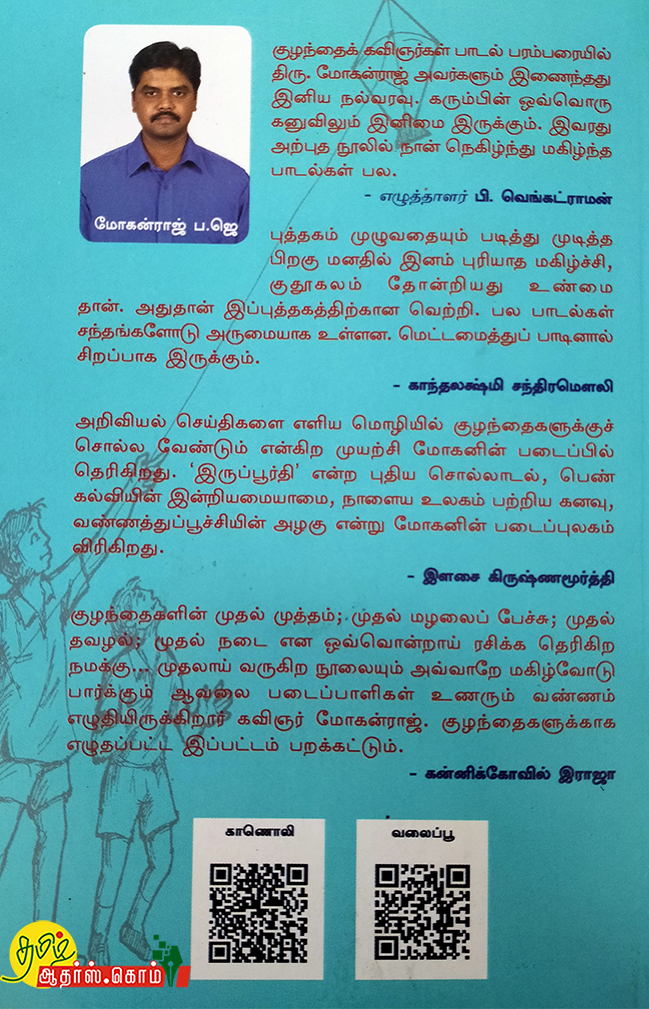 குழந்தைக் கவிஞர்கள் பாடல் பரம்பரையில்
திரு. மோகன்ராஜ் அவர்களும் இணைந்தது
இனிய நல்வரவு. கரும்பின் ஒவ்வொரு
கனுவிலும் இனிமை இருக்கும். இவரது
அற்புத நூலில் நான் நெகிழ்ந்து மகிழ்ந்த
பாடல்கள் பல.
- எழுத்தாளர் பி. வெங்கட்ராமன்
மோகன்ராஜ் ப.ஜெ
புத்தகம் முழுவதையும் படித்து முடித்த
பிறகு மனதில் இனம் புரியாத மகிழ்ச்சி,
குதூகலம் தோன்றியது உண்மை
தான். அதுதான் இப்புத்தகத்திற்கான வெற்றி. பல பாடல்கள்
சந்தங்களோடு அருமையாக உள்ளன. மெட்டமைத்துப் பாடினால்
சிறப்பாக இருக்கும்.
- காந்தலக்ஷ்மி சந்திரமௌலி
அறிவியல் செய்திகளை எளிய மொழியில் குழந்தைகளுக்குச்
சொல்ல வேண்டும் என்கிற முயற்சி மோகனின் படைப்பில்
தெரிகிறது. ‘இருப்பூர்தி’ என்ற புதிய சொல்லாடல், பெண்
கல்வியின் இன்றியமையாமை, நாளைய உலகம் பற்றிய கனவு,
வண்ணத்துப்பூச்சியின் அழகு என்று மோகனின் படைப்புலகம்
விரிகிறது.
- இளசை கிருஷ்ணமூர்த்தி
குழந்தைகளின் முதல் முத்தம்; முதல் மழலைப் பேச்சு; முதல்
தவழல்; முதல் நடை என ஒவ்வொன்றாய் ரசிக்க தெரிகிற
நமக்கு... முதலாய் வருகிற நூலையும் அவ்வாறே மகிழ்வோடு
பார்க்கும் ஆவலை படைப்பாளிகள் உணரும் வண்ணம்
எழுதியிருக்கிறார் கவிஞர் மோகன்ராஜ். குழந்தைகளுக்காக
எழுதப்பட்ட இப்பட்டம் பறக்கட்டும்.
- கன்னிக்கோவில் இராஜா
காணொலி
வலைப்பூ
தமிழ்
ஆதர்ஸ்.கொம்